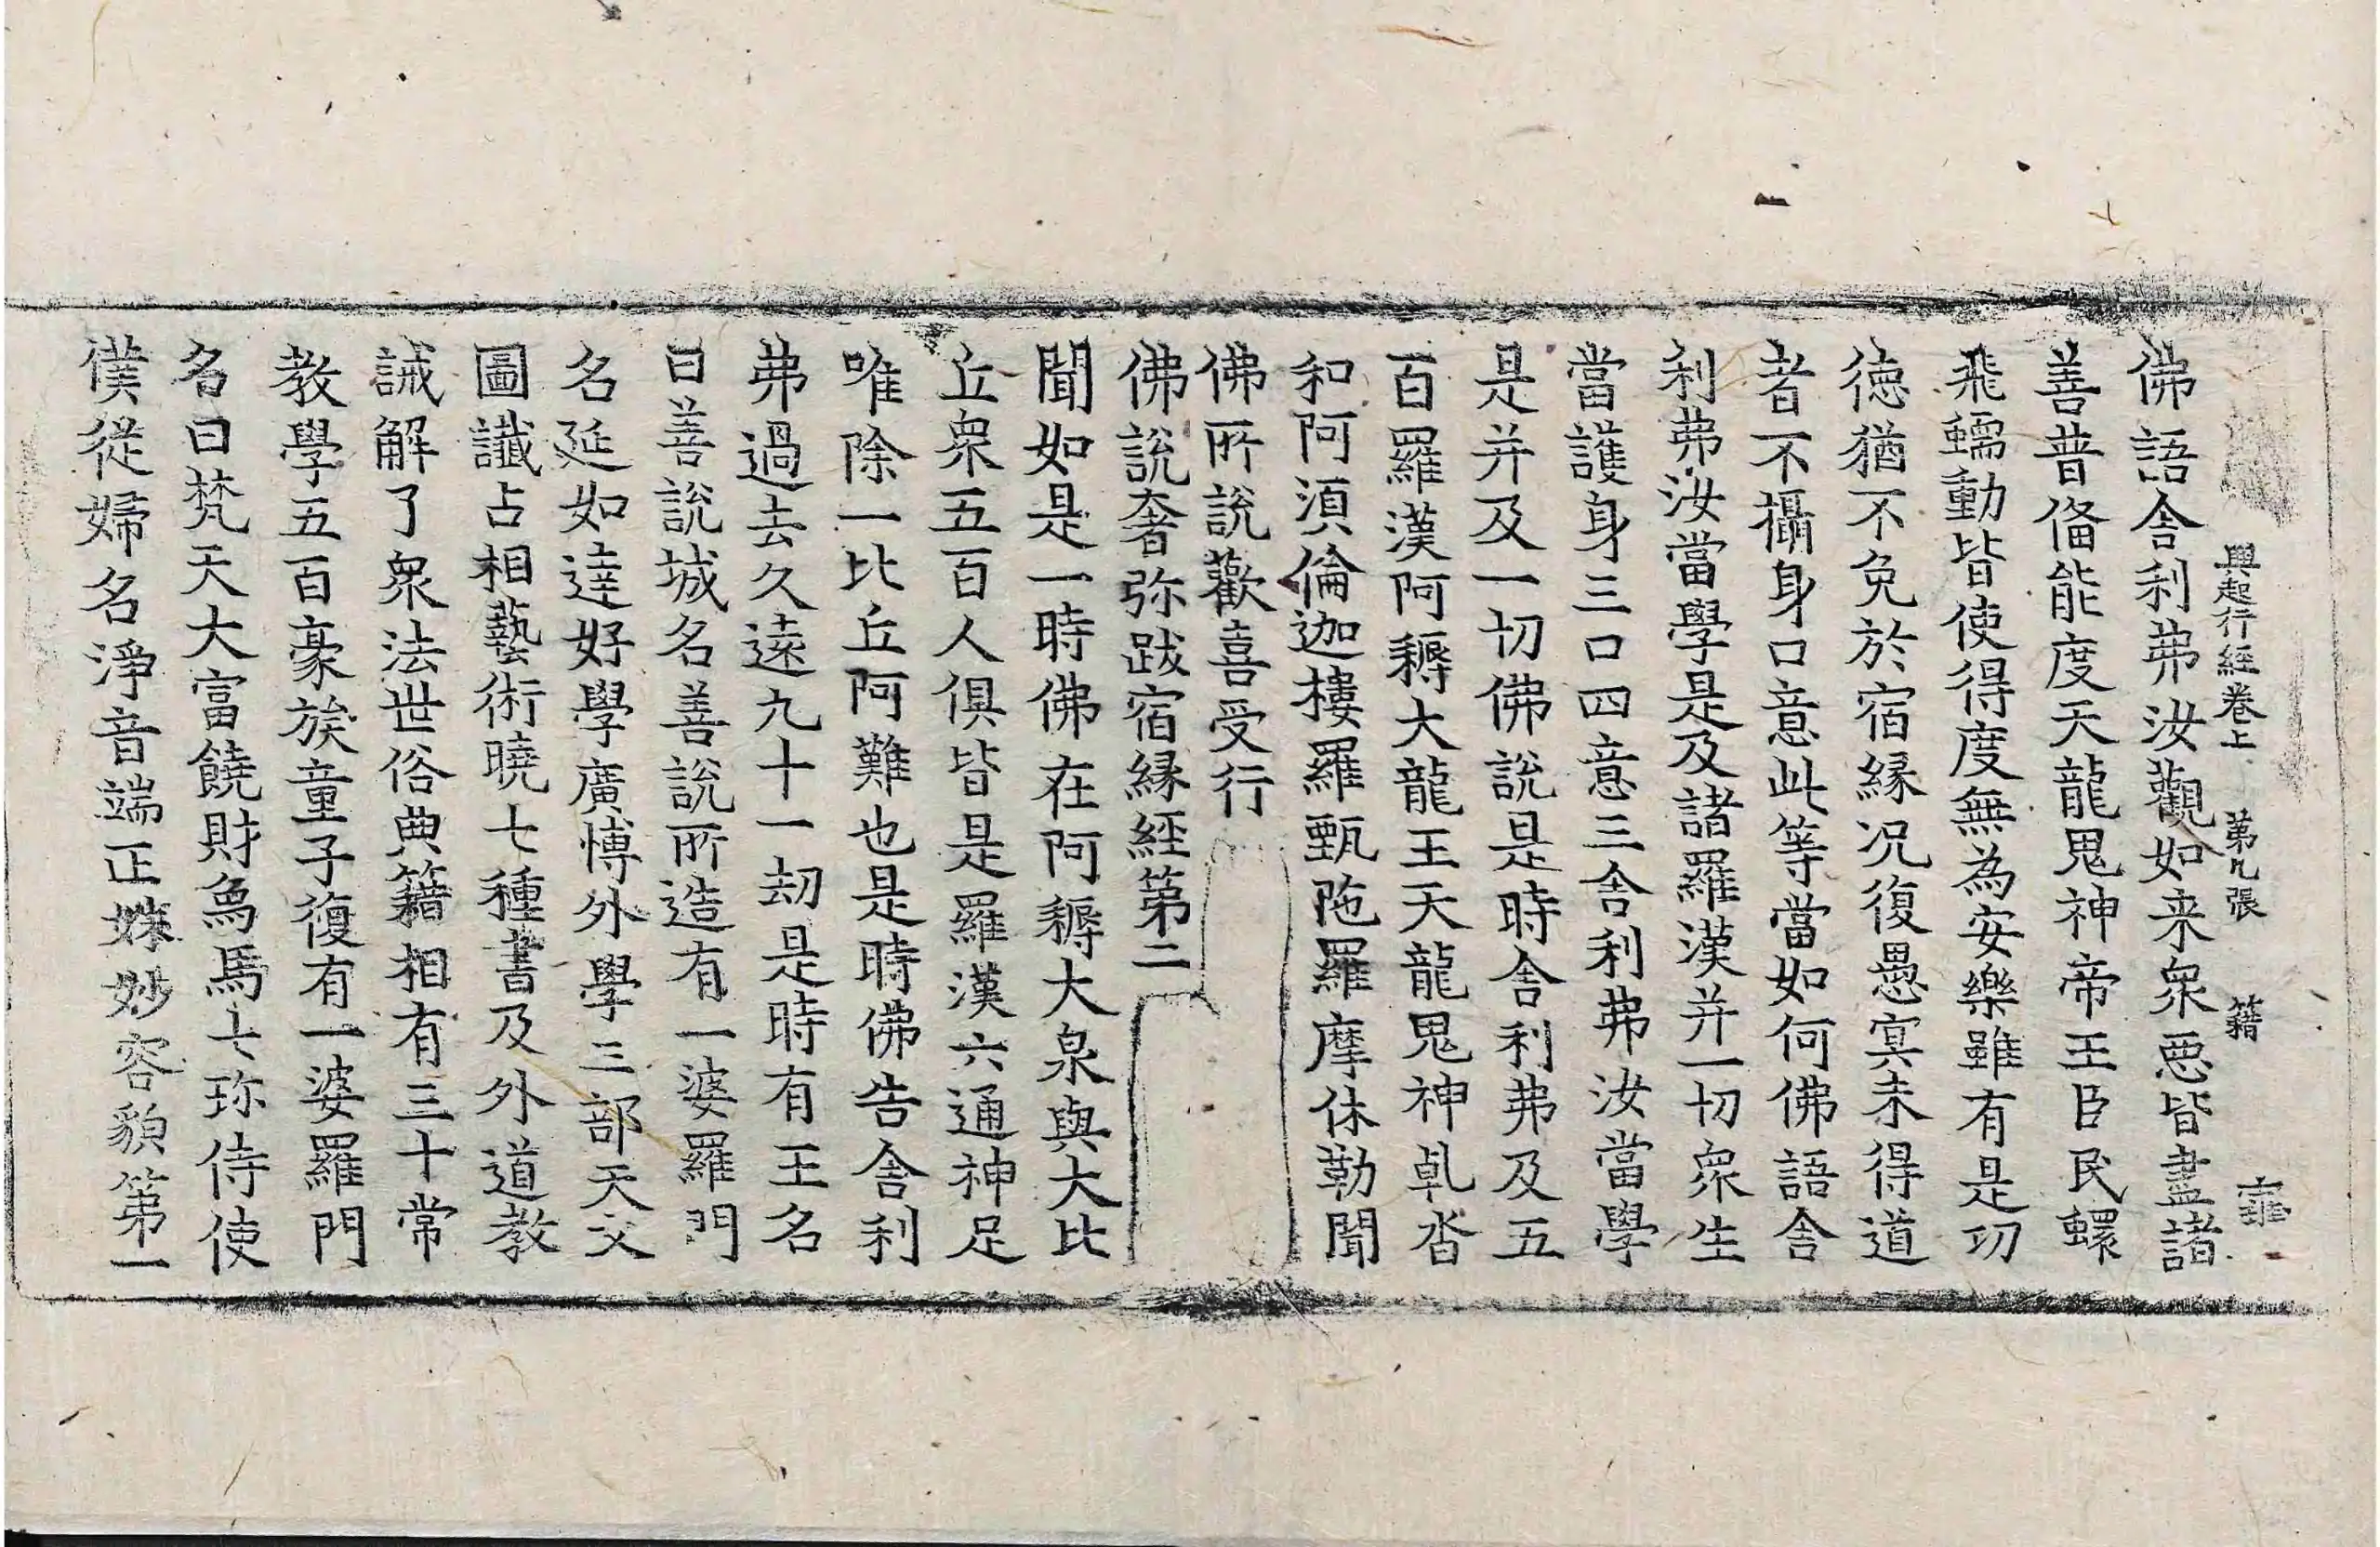 興起行經卷上 第九張 籍 䧹
佛語舍利弗汝觀如来衆惡皆盡諸
善普俻能度天龍鬼神帝王臣民蠉
飛蠕動皆使得度無為安樂雖有是㓛
徳猶不免於宿縁况復愚冥未得道
者不攝身口意此等當如何佛語舍
利弗汝當學是及諸羅漢并一切衆生
當護身三口四意三舍利弗汝當學
是并及一切佛說是時舍利弗及五
百羅漢阿耨大龍王天龍鬼神乹沓
和阿湏倫迦樓羅甄陁羅摩休勒聞
佛所說歡喜受行
佛說奢弥跋宿縁経第二
聞如是一時佛在阿耨大泉與大比
丘衆五百人俱皆是羅漢六通神足
唯除一比丘阿難也是時佛告舍利
弗過去久遠九十一劫是時有王名
曰善說城名善說所造有一婆羅門
名延如達好學廣愽外學三部天文
圖讖占相藝術曉七種書及外道教
誡解了衆法世俗典籍相有三十常
教學五百豪族童子復有一婆羅門
名曰梵天大富饒財象馬七珎侍使
僕從婦名淨音端正姝妙容貌第一